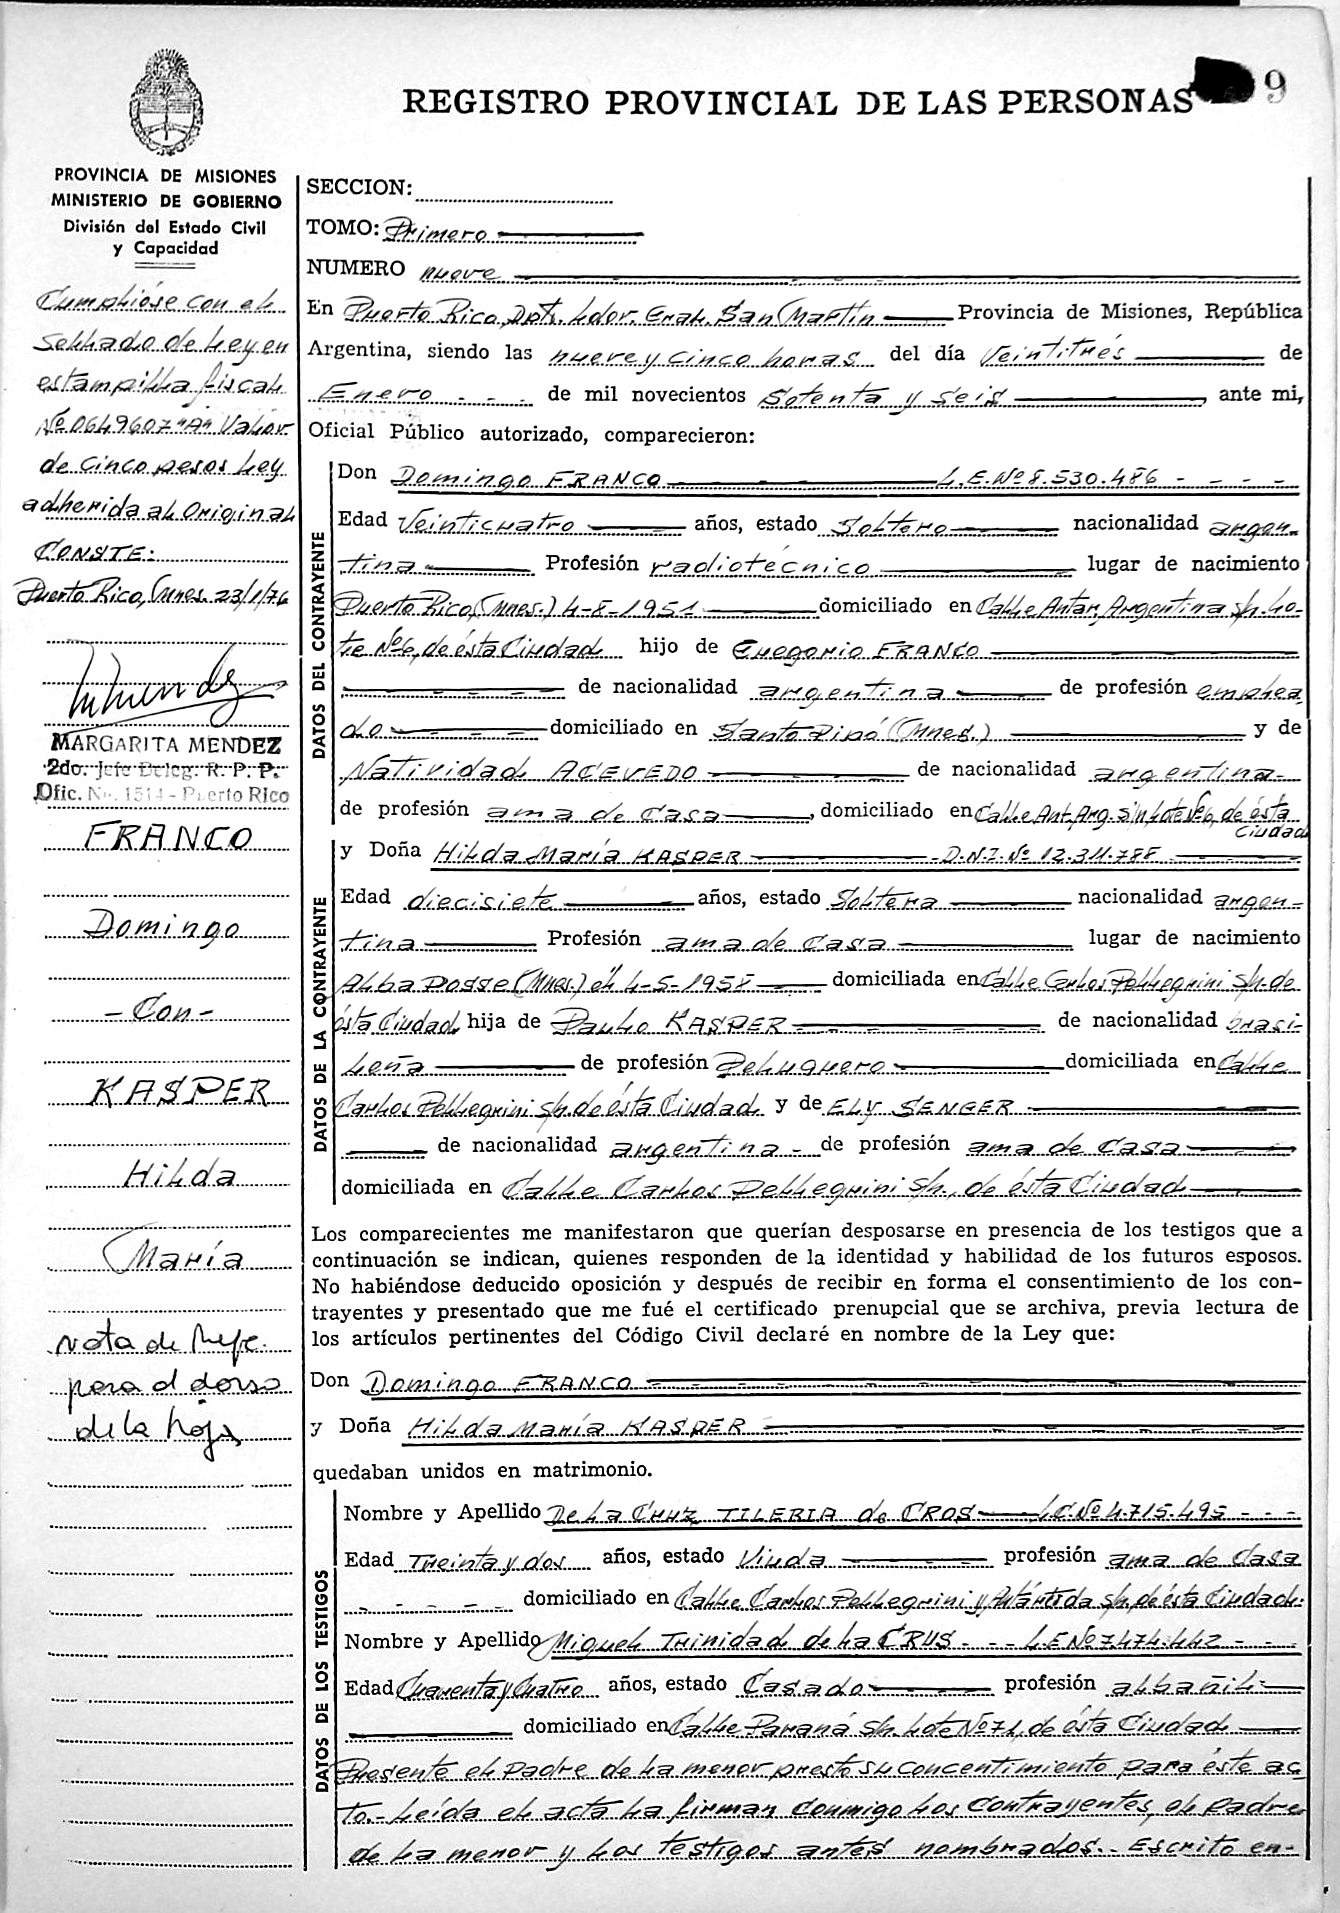 REGISTRO PROVINCIAL DE LAS PERSONAS
9
PROVINCIA DE MISIONES
MINISTERIO DE GOBIERNO
División del Estado Civil
y Capacidad
Cumplióse con el
sellado de Ley en
estampilla fiscal
Nº 0649607 "A" Valor
de cinco pesos Ley
adherida al Original
CONSTE:
Puerto Rico, (Mnes. 23/1/76
MARGARITA MENDEZ
2do. Jefe Deleg. R. P. P.
Ofic. No. 1514 - Puerto Rico
FRANCO
Domingo
- Con -
KASPER
Hilda
María
Nota de Refe.
para al dorso
de la hoja
SECCION:
TOMO: Primero
NUMERO nueve
En Puerto Rico, Dpto. Ldor. Gral. San Martín Provincia de Misiones, República
Argentina, siendo las nueve y cinco horas del día Veintitrés de
Enero - - - de mil novecientos Setenta y seis ante mi,
Oficial Público autorizado, comparecieron:
DATOS DEL CONTRAYENTE
Don Domingo FRANCO L.E.Nº 8.530.486 - - - -
Edad Veinticuatro años, estado Soltero nacionalidad argen-
tina Profesión radiotécnico lugar de nacimiento
Puerto Rico, (Mnes.) 4-8-1951 domiciliado en Calle Antar. Argentina s/n. Lo-
te Nº 6, de ésta Ciudad hijo de Gregorio FRANCO
de nacionalidad argentina de profesión emplea
do domiciliado en Santo Pipó (Mnes.) y de
Natividad ACEVEDO de nacionalidad argentina-
de profesión ama de Casa, domiciliado en Calle Ant. Arg. s/n, Lote Nº 6, de ésta
Ciudad
DATOS DE LA CONTRAYENTE
y Doña Hilda María KASPER D.N.I. Nº 12.311.788
Edad diecisiete años, estado Soltera nacionalidad argen-
tina Profesión ama de Casa lugar de nacimiento
Alba Posse (Mnes.) el 4-5-1958 domiciliada en Calle Carlos Pellegrini s/n. de
ésta Ciudad hija de Paulo KASPER de nacionalidad brasi-
leña de profesión Peluquero domiciliada en Calle
Carlos Pellegrini s/n. de ésta Ciudad y de ELY SENGER
de nacionalidad argentina - de profesión ama de Casa
domiciliada en Calle Carlos Pellegrini s/n., de ésta Ciudad
Los comparecientes me manifestaron que querían desposarse en presencia de los testigos que a
continuación se indican, quienes responden de la identidad y habilidad de los futuros esposos.
No habiéndose deducido oposición y después de recibir en forma el consentimiento de los con-
trayentes y presentado que me fué el certificado prenupcial que se archiva, previa lectura de
los artículos pertinentes del Código Civil declaré en nombre de la Ley que:
Don Domingo FRANCO
y Doña Hilda María KASPER
quedaban unidos en matrimonio.
DATOS DE LOS TESTIGOS
Nombre y Apellido De La Cruz TILERIA de CROS L.C.Nº 4.715.495 - - -
Edad Treinta y dos años, estado Viuda profesión ama de Casa
- - - - - domiciliado en Calle Carlos Pellegrini y Antártida s/n, de ésta Ciudad.
Nombre y Apellido Miguel Trinidad de La CRUS - - - L.E Nº 7.474.442 - - -
Edad Cuarenta y Cuatro años, estado Casado profesión albañil
domiciliado en Calle Paraná s/n. Lote Nº 71, de ésta Ciudad
Presente el Padre de la menor prestó su concentimiento para éste ac
to.- Leída el acta la firman conmigo los contrayentes, el padre
de la menor y los testigos antes nombrados.- Escrito en-